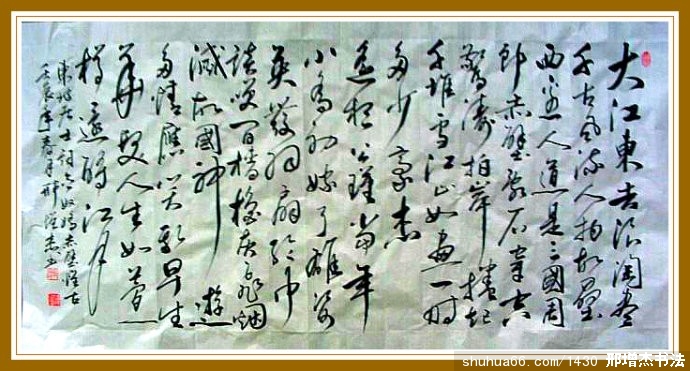 大江東去浪淘盡
千古風流人物故壘
西邊人道是三國周
郎赤壁亂石穿空
驚濤拍岸捲起
千堆雪江山如畫一時
多少豪杰
遙想公瑾當年
小喬初嫁了雄姿
英發羽扇綸巾
談笑間檣櫓灰飛烟
滅故國神遊
多情應笑我早生
華髮人生如夢一
樽還酹江月
東坡居士詞念奴嬌赤壁懷古
壬辰年春月邢增杰書
shuhua66.com/1430 邢增杰书法